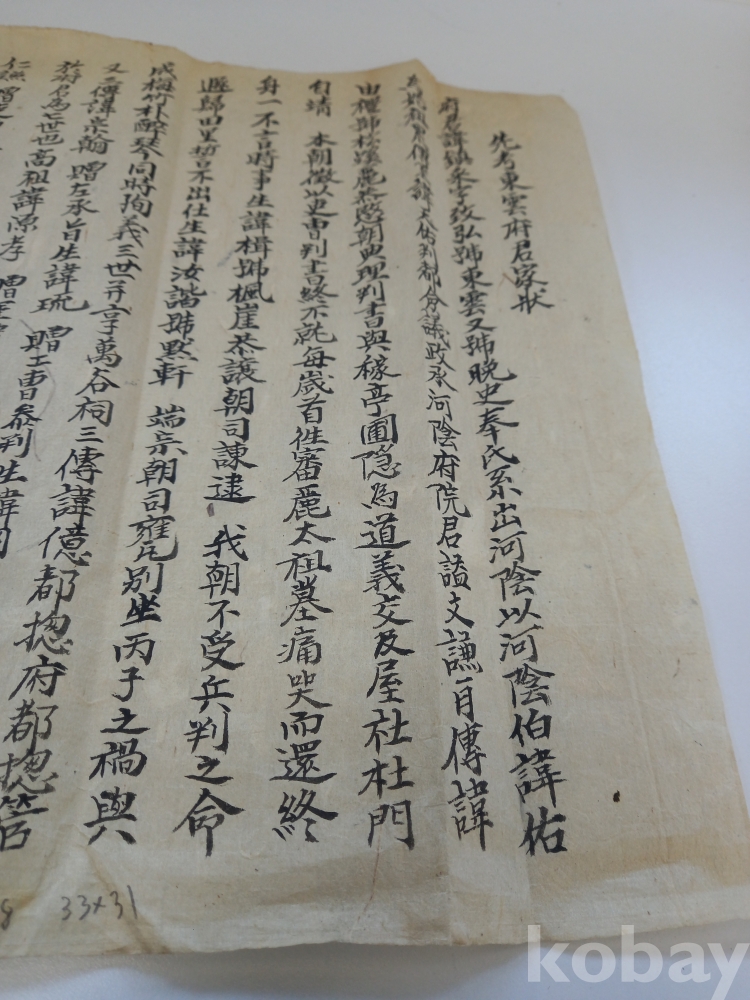 先考東雲府君家狀
府君諱鎭采字致弘號東雲又號晚史奉氏系出河陰以河陰伯諱佑
爲鼻祖 傳 諱天佑判都僉議政丞河陰府院君謚文謙一自傳諱
由禮號 溪麗 朝典理判書與稼亭圃隱爲道義交及屋社杜門
自靖 本朝徵以吏曹判書終不就每歲首徃審麗太祖墓痛哭而還終
身一不言時事生諱楫號楓崖恭讓朝司諫逮 我朝不受兵判之命
遯歸田里誓不出仕生諱汝諧號默軒 端宗朝司饔瓦別坐丙子之禍與
成梅竹朴醉琴同時殉義三世幷享萬谷祠三傳諱億都摠府都摠管
又三傳諱宗翰 贈左承旨生諱琉 贈工曹叅判生諱
於府君爲七世也高祖諱源孝 贈
仁
33×31
kobay